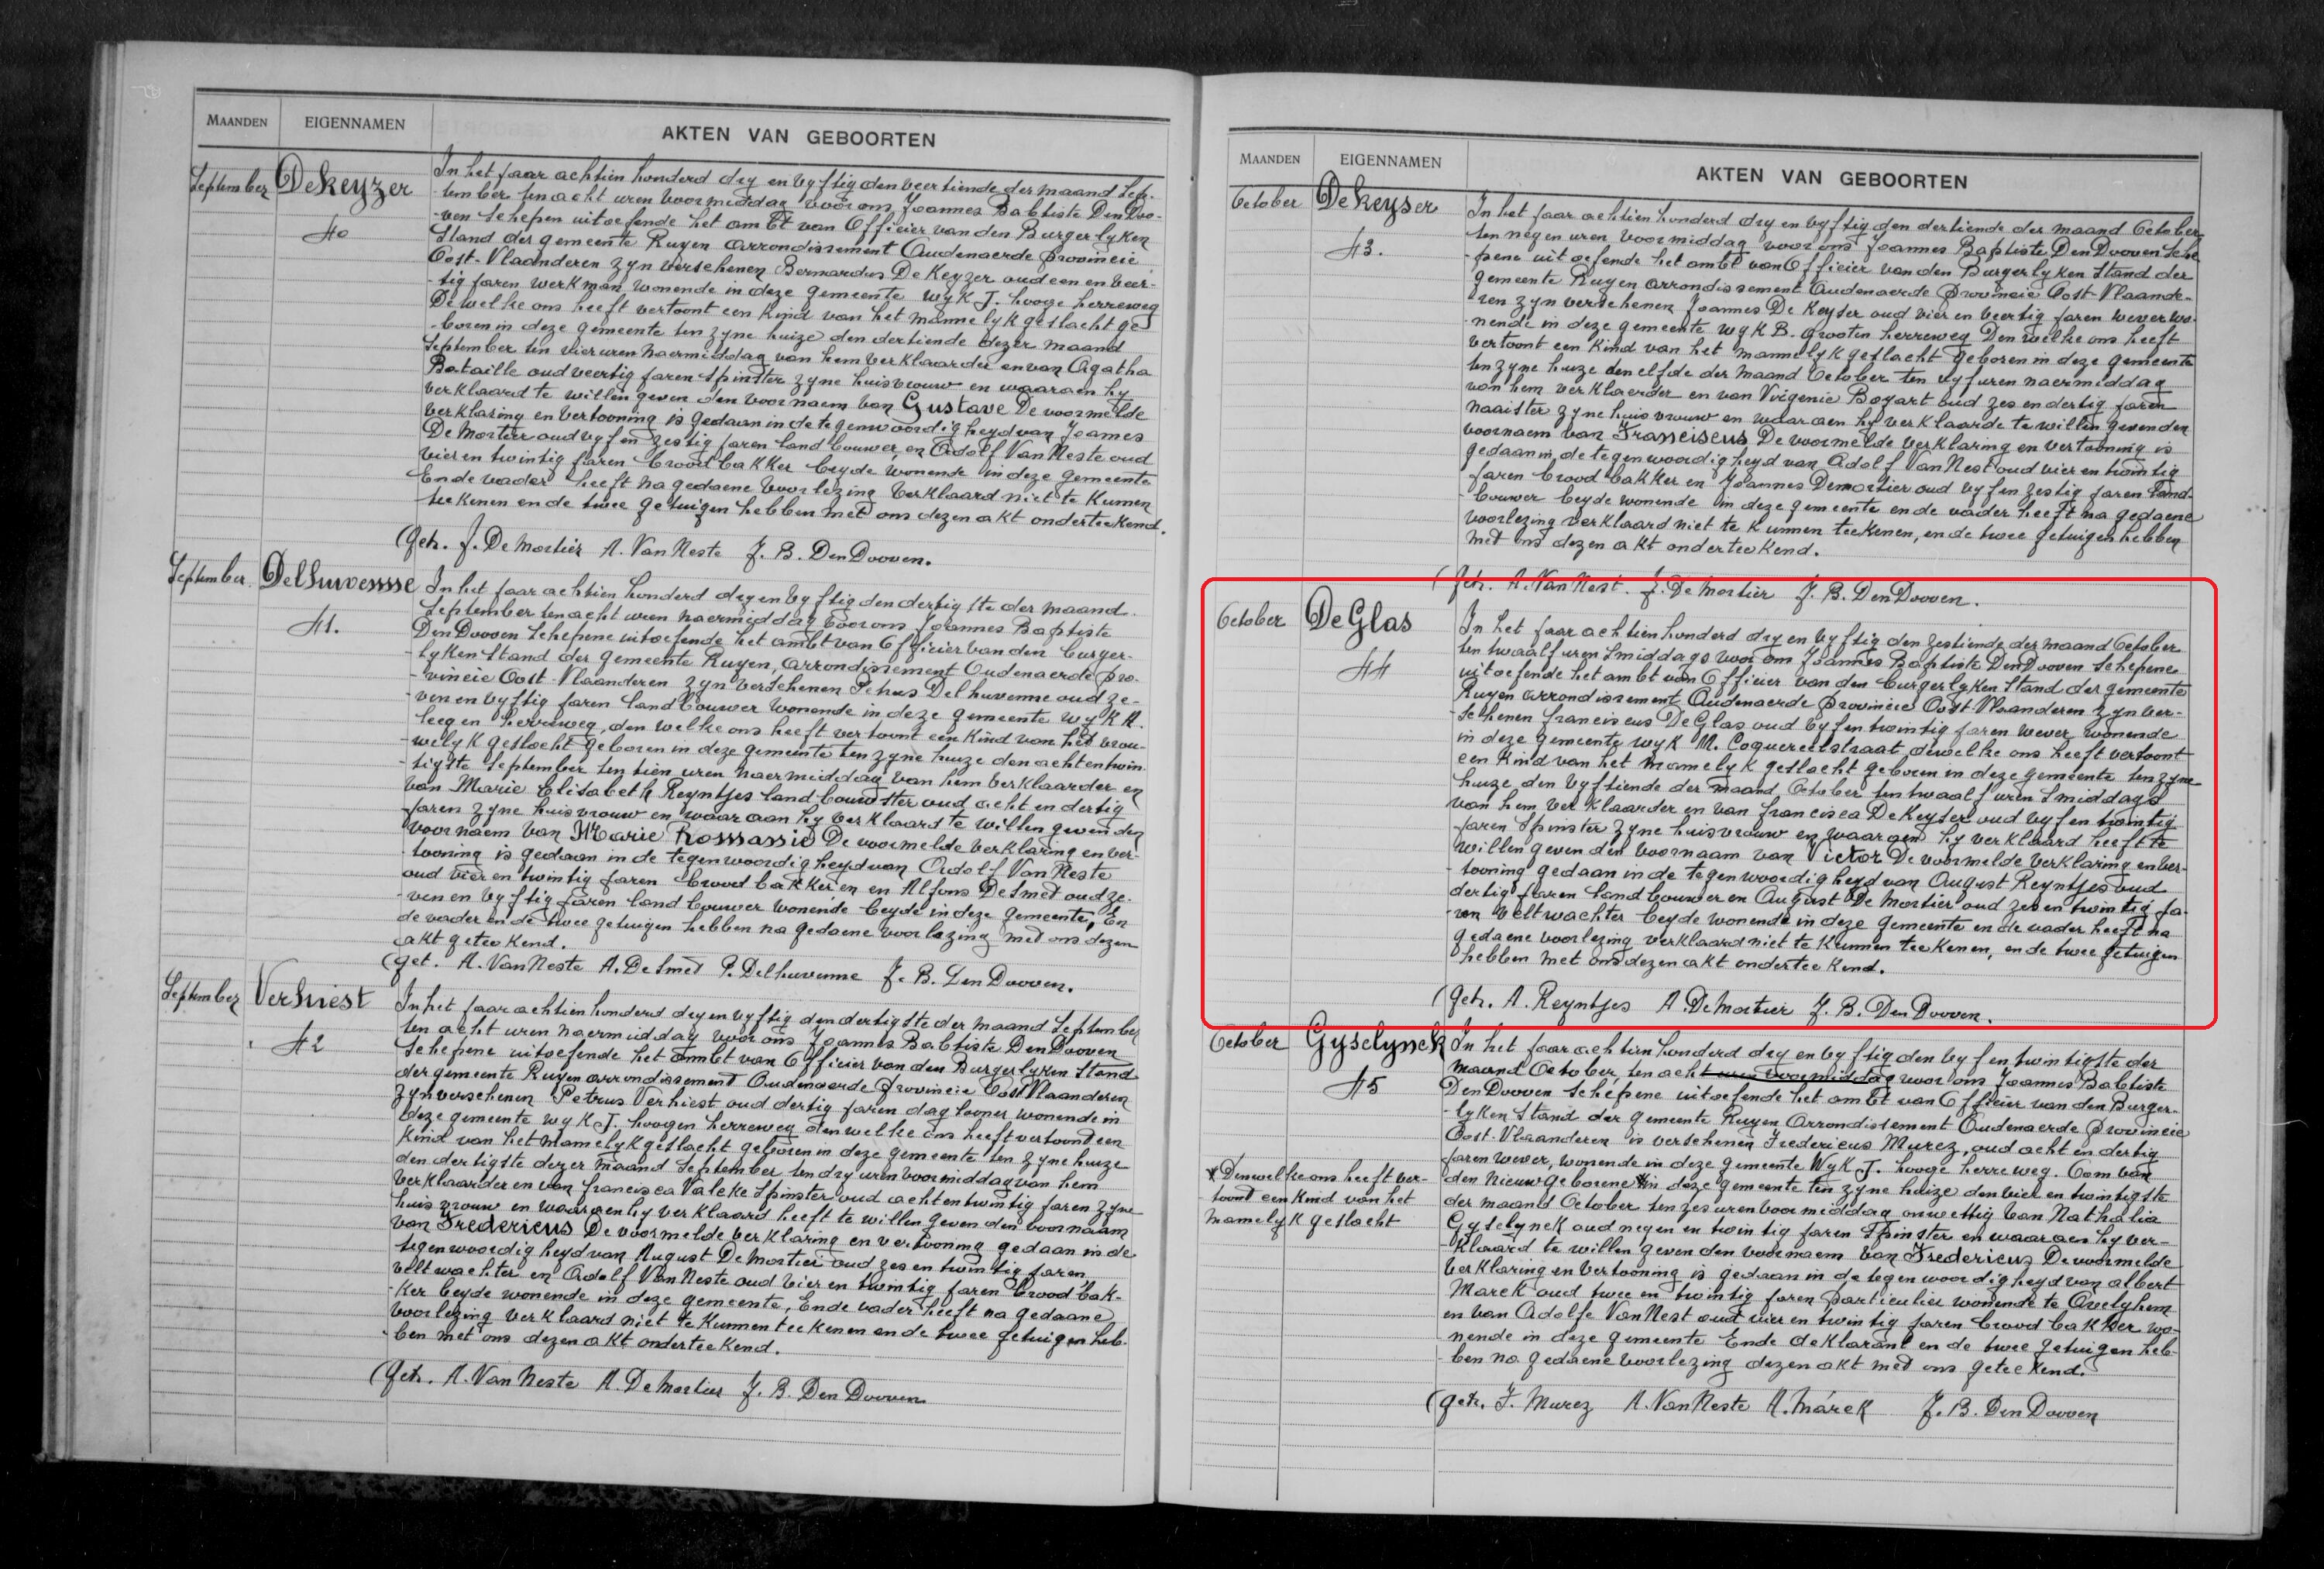 MAANDEN EIGENNAMEN AKTEN VAN GEBOORTEN
September DeKeyzer In het jaar achtien honderd dry en vyftig den veertiende der maand Sep-
40 -tember ten acht uren voormiddag voor ons Joannes Babtiste Den Doo-
-ven Schepen uitoefende het ambt van Officier van den Burgerlyken
Stand der gemeente Ruyen arrondissement Audenaerde provincie
Oost-Vlaanderen zyn verschenen Bernardus De Keyzer oud een en veer-
-tig jaren werkman wonende in deze gemeente wyk J. hooge herreweg
Dewelke ons heeft vertoont een kind van het mannelyk geslacht ge
-boren in deze gemeente ten zyne huize den dertiende dezer maand
September ten vier uren naermiddag van hem verklaarder en van Agatha
Bataille oud veertig jaren spinster zyne huisvrouw en waaraen hy
verklaard te willen geven den voornaem van Gustave De voormelde
verklaring en vertooning is gedaan in de tegenwoordigheyd van Joames
De Mortier oud vyf en zestig jaren landbouwer, en Adolf Van Neste oud
vier en twintig jaren broodbakker beyde wonende in deze gemeente
Ende vader heeft na gedaene voorlezing verklaard niet te kunnen
teekenen en de twee getuigen hebben met ons dezen akt onderteekend.
(Get. J. De Mortier A. Van Neste J. B. Den Dooven.
September Delhuvessse In het jaar achtien honderd dry en vyftig den dertigste der maand
41. September ten acht uren naermiddag voor ons Joannes Baptiste
Den Dooven Schepene uitoefende het ambt van Officier van den burger-
-lyken stand der gemeente Ruyen, arrondissement Oudenaerde pro-
-vincie Oost-Vlaanderen zyn verschenen Petrus Delhuvenne oud ze-
ven en vyftig jaren landbouwer wonende in deze gemeente wyk A.
leegen herreweg, den welke ons heeft vertoont een kind van het vrou-
-welyk geslacht geboren in deze gemeente ten zyne huize den achtentwin
-tigste September ten tien uren naermiddag van hem verklaarder en
van Marie Elisabeth Reyntjes landbouwster oud acht en dertig
jaren zyne huisvrouw en waaraan hy verklaard te willen geven den
voornaem van Marie De voormelde verklaring en ver-
-tooning is gedaan in de tegenwoordigheyd van Adolf Van Neste
oud vier en twintig jaren broodbakker en en Alfons De Smet oud ze-
-ven en vyftig jaren landbouwer wonende beyde in deze gemeente, En
de vader en de twee getuigen hebben na gedaene voorlezing met ons dezen
akt geteekend.
(get. A. Van Neste A. De Smet P. Delhuvenne J. B. Den Dooven.
September Verhiest In het jaar achtien honderd dry en vyftig den dertigste der maand September
42 ten acht uren naermiddag voor ons Joannes Babtiste Den Dooven
Schepene uitoefende het ambt van Officier van den Burgerlyken Stand
der gemeente Ruyen arrondissement Oudenaerde provincie Oost Vlaanderen
zyn verschenen Petrus Verhiest oud dertig jaren daglooner wonende in
deze gemeente wyk J. hoogen herreweg den welke ons heeft vertoond een
kind van het mamelyk geslacht geboren in deze gemeente ten zyne huize
den dertigste dezer maand September ten dry uren voormiddag van hem
verklaarder en van francisca Valcke spinster oud acht en twintig jaren zyne
huisvrouw en waaraen hy verklaard heeft te willen geven den voornaam
van Fredericus De voormelde verklaring en vertooning gedaan in de
tegenwoordigheyd van August De Mortier oud zes en twintig jaren
veltwachter en Adolf Van Neste oud vier en twintig jaren broodbak-
-ker beyde wonende in deze gemeente, Ende vader heeft na gedaane
voorlezing verklaard niet te kunnen teekenen en de twee getuigen heb-
-ben met ons dezen akt onderteekend.
(Get. A. Van Neste A. De Mortier J. B. Den Dooven.
MAANDEN EIGENNAMEN AKTEN VAN GEBOORTEN
October DeKeyser In het jaar achtien honderd dry en vyftig den dertiende der maand October
43. ten negen uren voormiddag voor ons Joannes Baptiste Den Dooven Sche
-pene uitoefende het ambt van Officier van den Burgerlyken Stand der
gemeente Ruyen arrondissement Audenaerde provincie Oost-Vlaande-
ren zyn verschenen Joannes De Keyser oud vier en veertig jaren wever wo-
-nende in deze gemeente wyk B. grooten herreweg Den welke ons heeft
vertoont een kind van het mannelyk geslacht geboren in deze gemeente
ten zyne huize den elfde der maand October ten vyf uren naermiddag
van hem verklaerder en van Virgenie Bogart oud zes en dertig jaren
naaister zyne huisvrouw en waaraen hy verklaarde te willen geven den
voornaem van Fransciscus De voormelde verklaring en vertooning is
gedaan in de tegenwoordigheyd van Adolf Van Nest oud vier en twintig
jaren broodbakker en Joannes Demortier oud vyf en zestig jaren land-
-bouwer beyde wonende in deze gemeente en de vader heeft na gedaene
voorlezing verklaard niet te kunnen teekenen, en de twee getuigen hebben
met ons dezen akt onderteekend.
(Get. A. Van Nest. J. De Mortier J. B. Den Dooven.
October DeGlas In het jaar achtien honderd dry en vyftig den zestiende der maand October
44 ten twaalf uren smiddags voor ons Joannes Baptiste Den Dooven Schepene
uitoefende het ambt van Officier van den burgerlyken Stand der gemeente
Ruyen arrondissement Audenaerde provincie Oost-Vlaanderen zyn ver-
-schenen franciscus De Glas oud vyf en twintig jaren wever wonende
in deze gemeente wyk M. Coquereelstraat dewelke ons heeft vertoont
een kind van het mamelyk geslacht geboren in deze gemeente ten zyne
huize den vyftiende der maand October ten twaalf uren smiddags
van hem verklaarder en van francisca De Keyser oud vyf en twintig
jaren spinster zyne huisvrouw en waaraen hy verklaard heeft te
willen geven den voornaam van Victor De voormelde verklaring en ver-
-tooning gedaan in de tegenwoordigheyd van August Reyntjes oud
dertig jaren landbouwer en August De Mortier oud zes en twintig ja-
-ren veltwachter beyde wonende in deze gemeente en de vader heeft na
gedaene voorlezing verklaard niet te kunnen teekenen, en de twee getuigen
hebben met ons dezen akt onderteekend.
(Get. A. Reyntjes A. De Mortier J. B. Den Dooven.
October Gyselynck In het jaar achtien honderd dry en vyftig den vyf en twintigste der
45 maand October, ten acht uren voormiddag voor ons Joannes Babtiste
Den Dooven Schepene uitoefende het ambt van Officier van den Burger-
-lyken Stand der gemeente Ruyen Arrondissement Oudenaerde provincie
Oost-Vlaanderen is verschenen Fredericus Murez, oud acht en dertig
jaren wever, wonende in deze gemeente Wyk J. hooge herreweg. Oom van
* Denwelke ons heeft ver- den nieuwgeborene * in deze gemeente ten zyne huize den vier en twintigste
toont een kind van het der maand October ten zes uren voormiddag onwettig van Nathalia
mamelyk geslacht Gyselynck oud negen en twintig jaren Spinster en waaraen hy ver-
-klaard te willen geven den voornaem van Fredericus De voormelde
verklaring en vertooning is gedaan in de tegenwoordigheyd van albert
Marek oud twee en twintig jaren particulier wonende te Avelghem
en van Adolfe Van Nest oud vier en twintig jaren broodbakker wo-
nende in deze gemeente Ende deklarant en de twee getuigen heb-
-ben na gedaene voorlezing dezen akt met ons geteekend.
(get. F. Murez A. Van Neste A. Márek J. B. Den Dooven